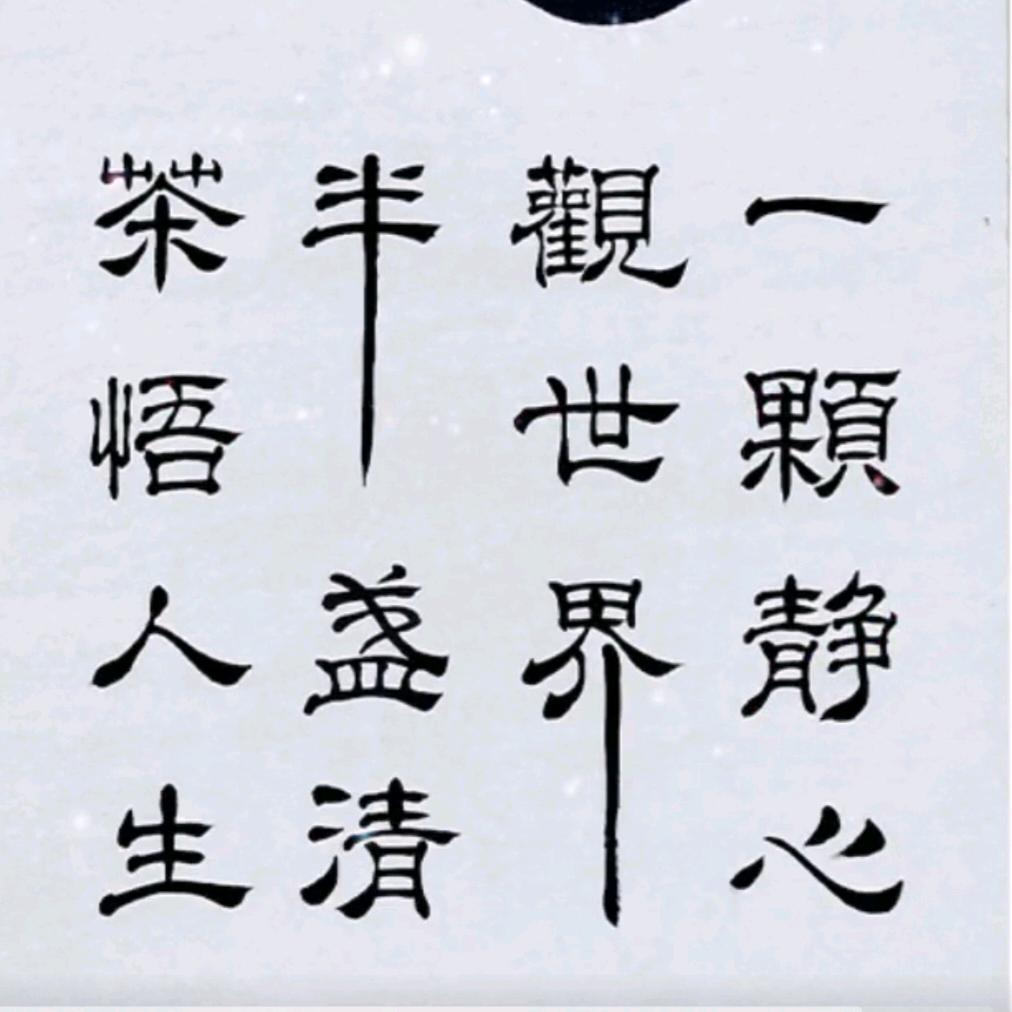 一顆静心
觀世界
半盏清
茶悟人生